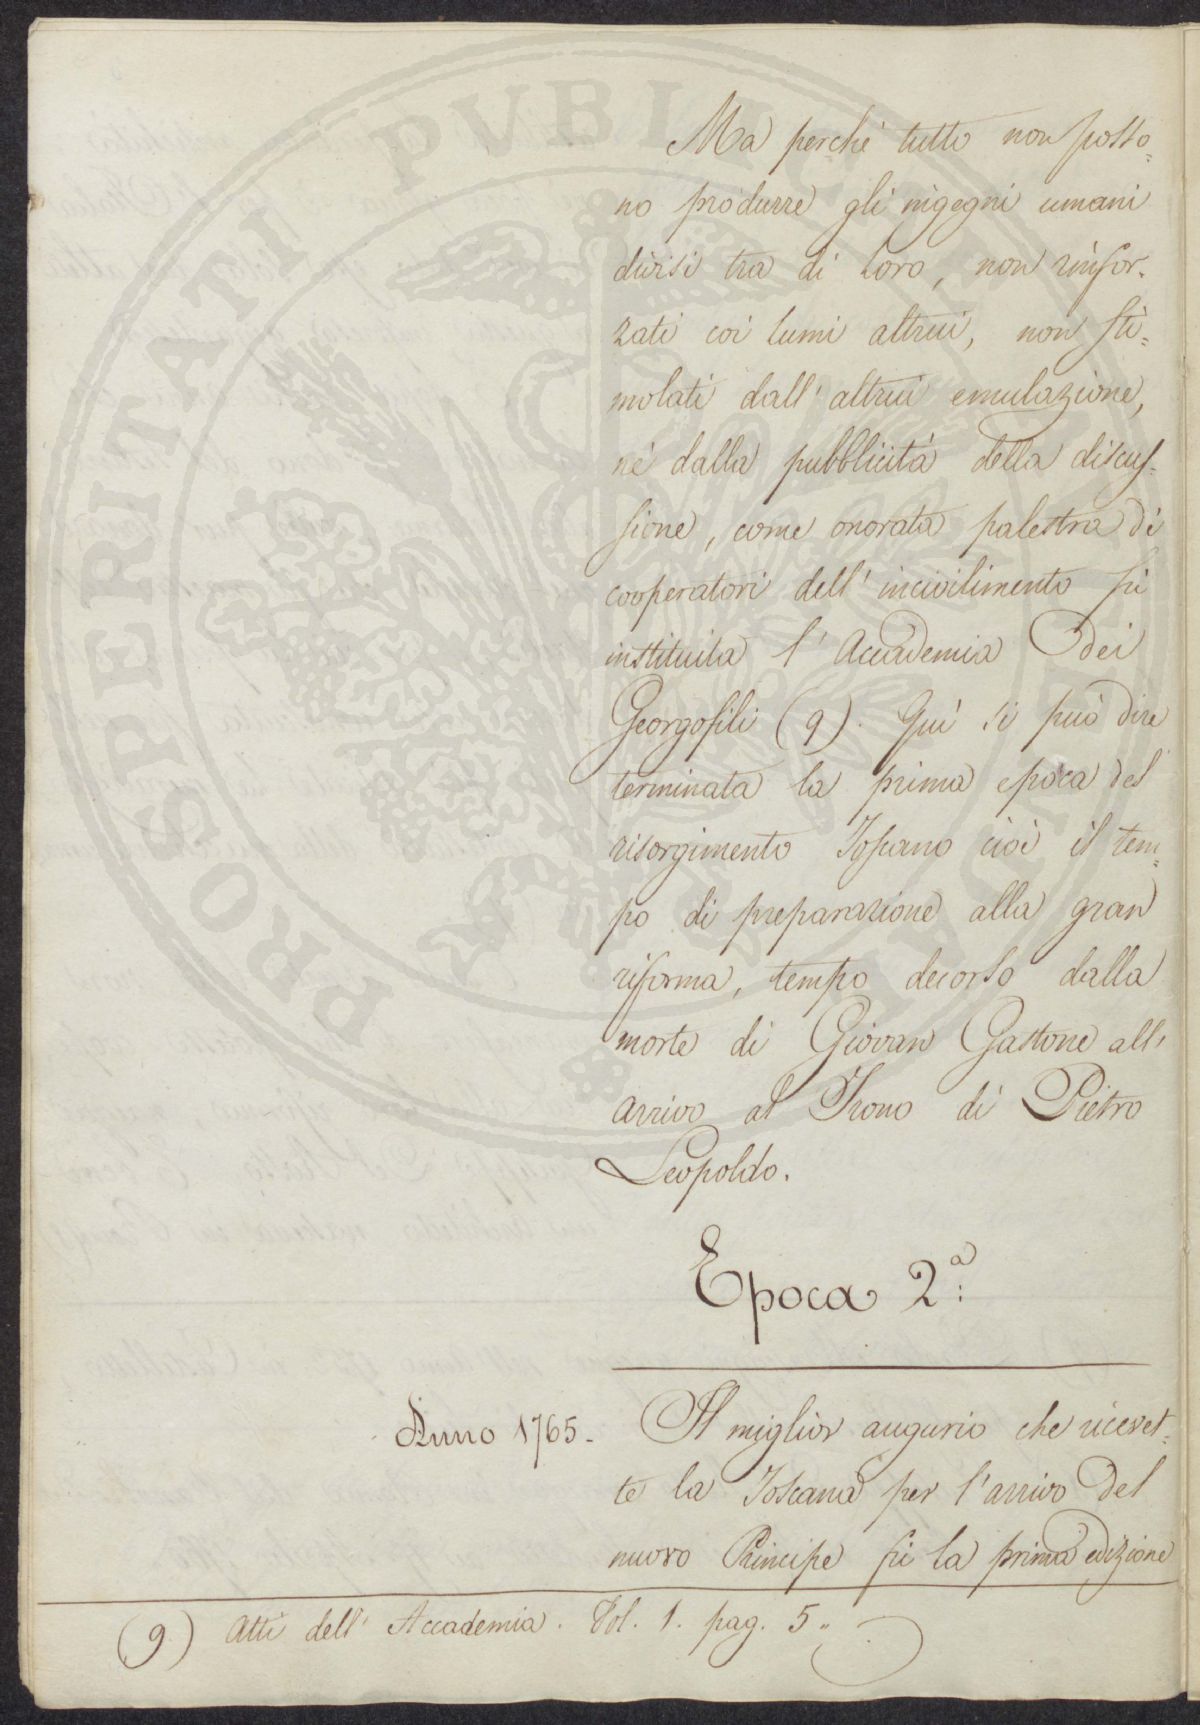 Ma perchè tutto non posso=
no produrre gli ingegni umani
divisi tra di loro, non rinfor=
zati coi lumi altrui, non sti=
molati dall' altrui emulazione,
nè dalla pubblicità della discus=
sione, come onorata palestra di
cooperatori dell' incivilimento fù
instituita l' Accademia dei
Georgofili (9). Quì si può dire
terminata la prima epoca del
risorgimento Toscano cioè il tem=
po di preparazione alla gran
riforma, tempo decorso dalla
morte di Giovan Gastone all'
arrivo al Trono di Pietro
Leopoldo.
Epoca 2.ª
Anno 1765.
Il miglior augurio che ricevet=
te la Toscana per l'arrivo del
nuovo Principe fù la prima edizione
(9) Atti dell' Accademia. Vol. 1. pag. 5..
PROSPERITATI PVBLICAE